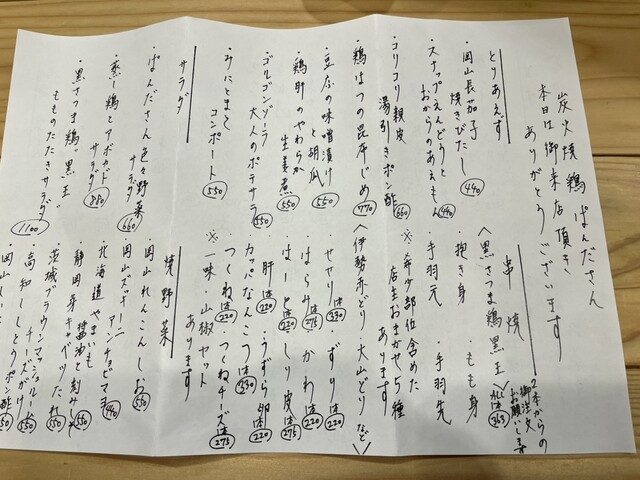 炭火焼鶏 ぱんださん
本日は御来店頂き
ありがとうございます
とりあえず
・岡山長茄子
焼きびたし 440
・スナップえんどうと
おからのあえもん 440
・コリコリ親皮
湯引きポン酢 660
・鶏はつの昆布じめ 770
・豆腐の味噌漬け
と胡瓜 550
・鶏肝のやわらか
生姜煮 550
・ゴルゴンゾーラ
大人のポテサラ 550
・みにとまと
コンポート 550
サラダ
・ぱんださん色々野菜
サラダ 660
・蒸し鶏とアボカド
サラダ 880
・黒さつま鶏 黒王
もものたたきサラダ 1100
串焼
2本からの
御注文
お願いします
〈黒さつま鶏 黒王〉 ALL 1本 363
・抱き身 ・もも身
・手羽元 ・手羽先
※希少部位含めた
店主おまかせ5種
あります
〈伊勢赤どり・大山どり など〉
・せせり 1本 230 ・ずり 1本 220
・はらみ 1本 275 ・かわ 1本 220
・はーと 1本 220 ・しり皮 1本 275
・肝 1本 220 ・うずら卵 1本 220
・カッパなんこつ 1本 330
・つくね 1本 220 ・つくねチーズ 1本 275
※一味、山椒セット
あります
焼野菜
・岡山れんこん しお 550
・岡山ズッキーニ
アンチョビマヨ 440
・北海道やまいも
醤油と刻みしそ 550
・静岡芽キャベツ たれ 550
・茨城ブラウンマッシュルーム
チーズがけ 550
・高知ししとう ポン酢 550